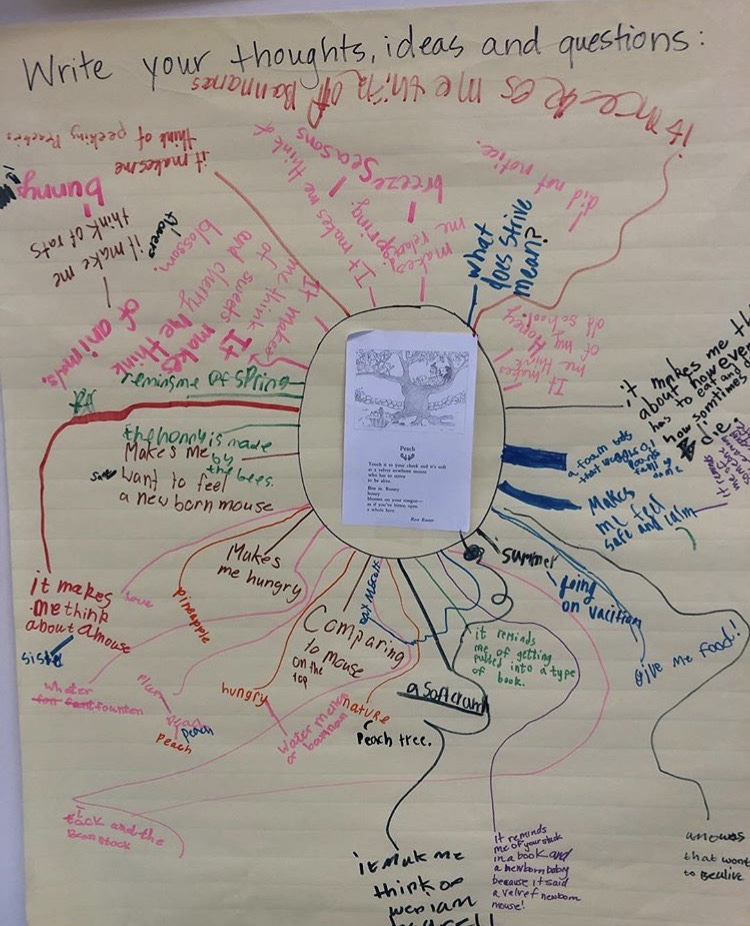 Write your thoughts, ideas and questions:
it me es me think of Bannanas
it makes me
think of pecking
bunny
it make me
think of rats
flowers
It makes
me think
of animals.
It makes
me think
of sweets
and cherry
blossom.
It makes me think of
spring.
Seasons
breeze
makes
me relax
what
does strive
mean?
did not notice.
It makes
me think
of my Honey
old school.
reminds me of spring
the honny is made
by
the bees.
Makes me
want to feel
a new born mouse
it makes
me think
about a mouse
sista
love
pineapple
Makes
me hungry
Comparing
to mouse
on the
top
whater
founten
Plum
peach
Peach
hungry
Water melon
or
nature
Peach tree.
tack and the
Beanstock
a soft crunch
it reminds
me of getting
pulled into a type
of book.
summer
going
on vacition
give me food!
it makes me th
about how ever
has to eat and d
how somtimes
die.
a foam
that
Makes
me feel
safe and calm
it make me
think of
it reminds
me of your stuk
in a book and
a newborn baby
because it said
a velvet newborn
mouse!
that wont
to
Peach
Touch it to your cheek and it's soft
as a velvet newborn mouse
who has to strive
to be alive.
Bite in. Runny
honey
blooms on your tongue—
as if you've bitten open
a whole hive.